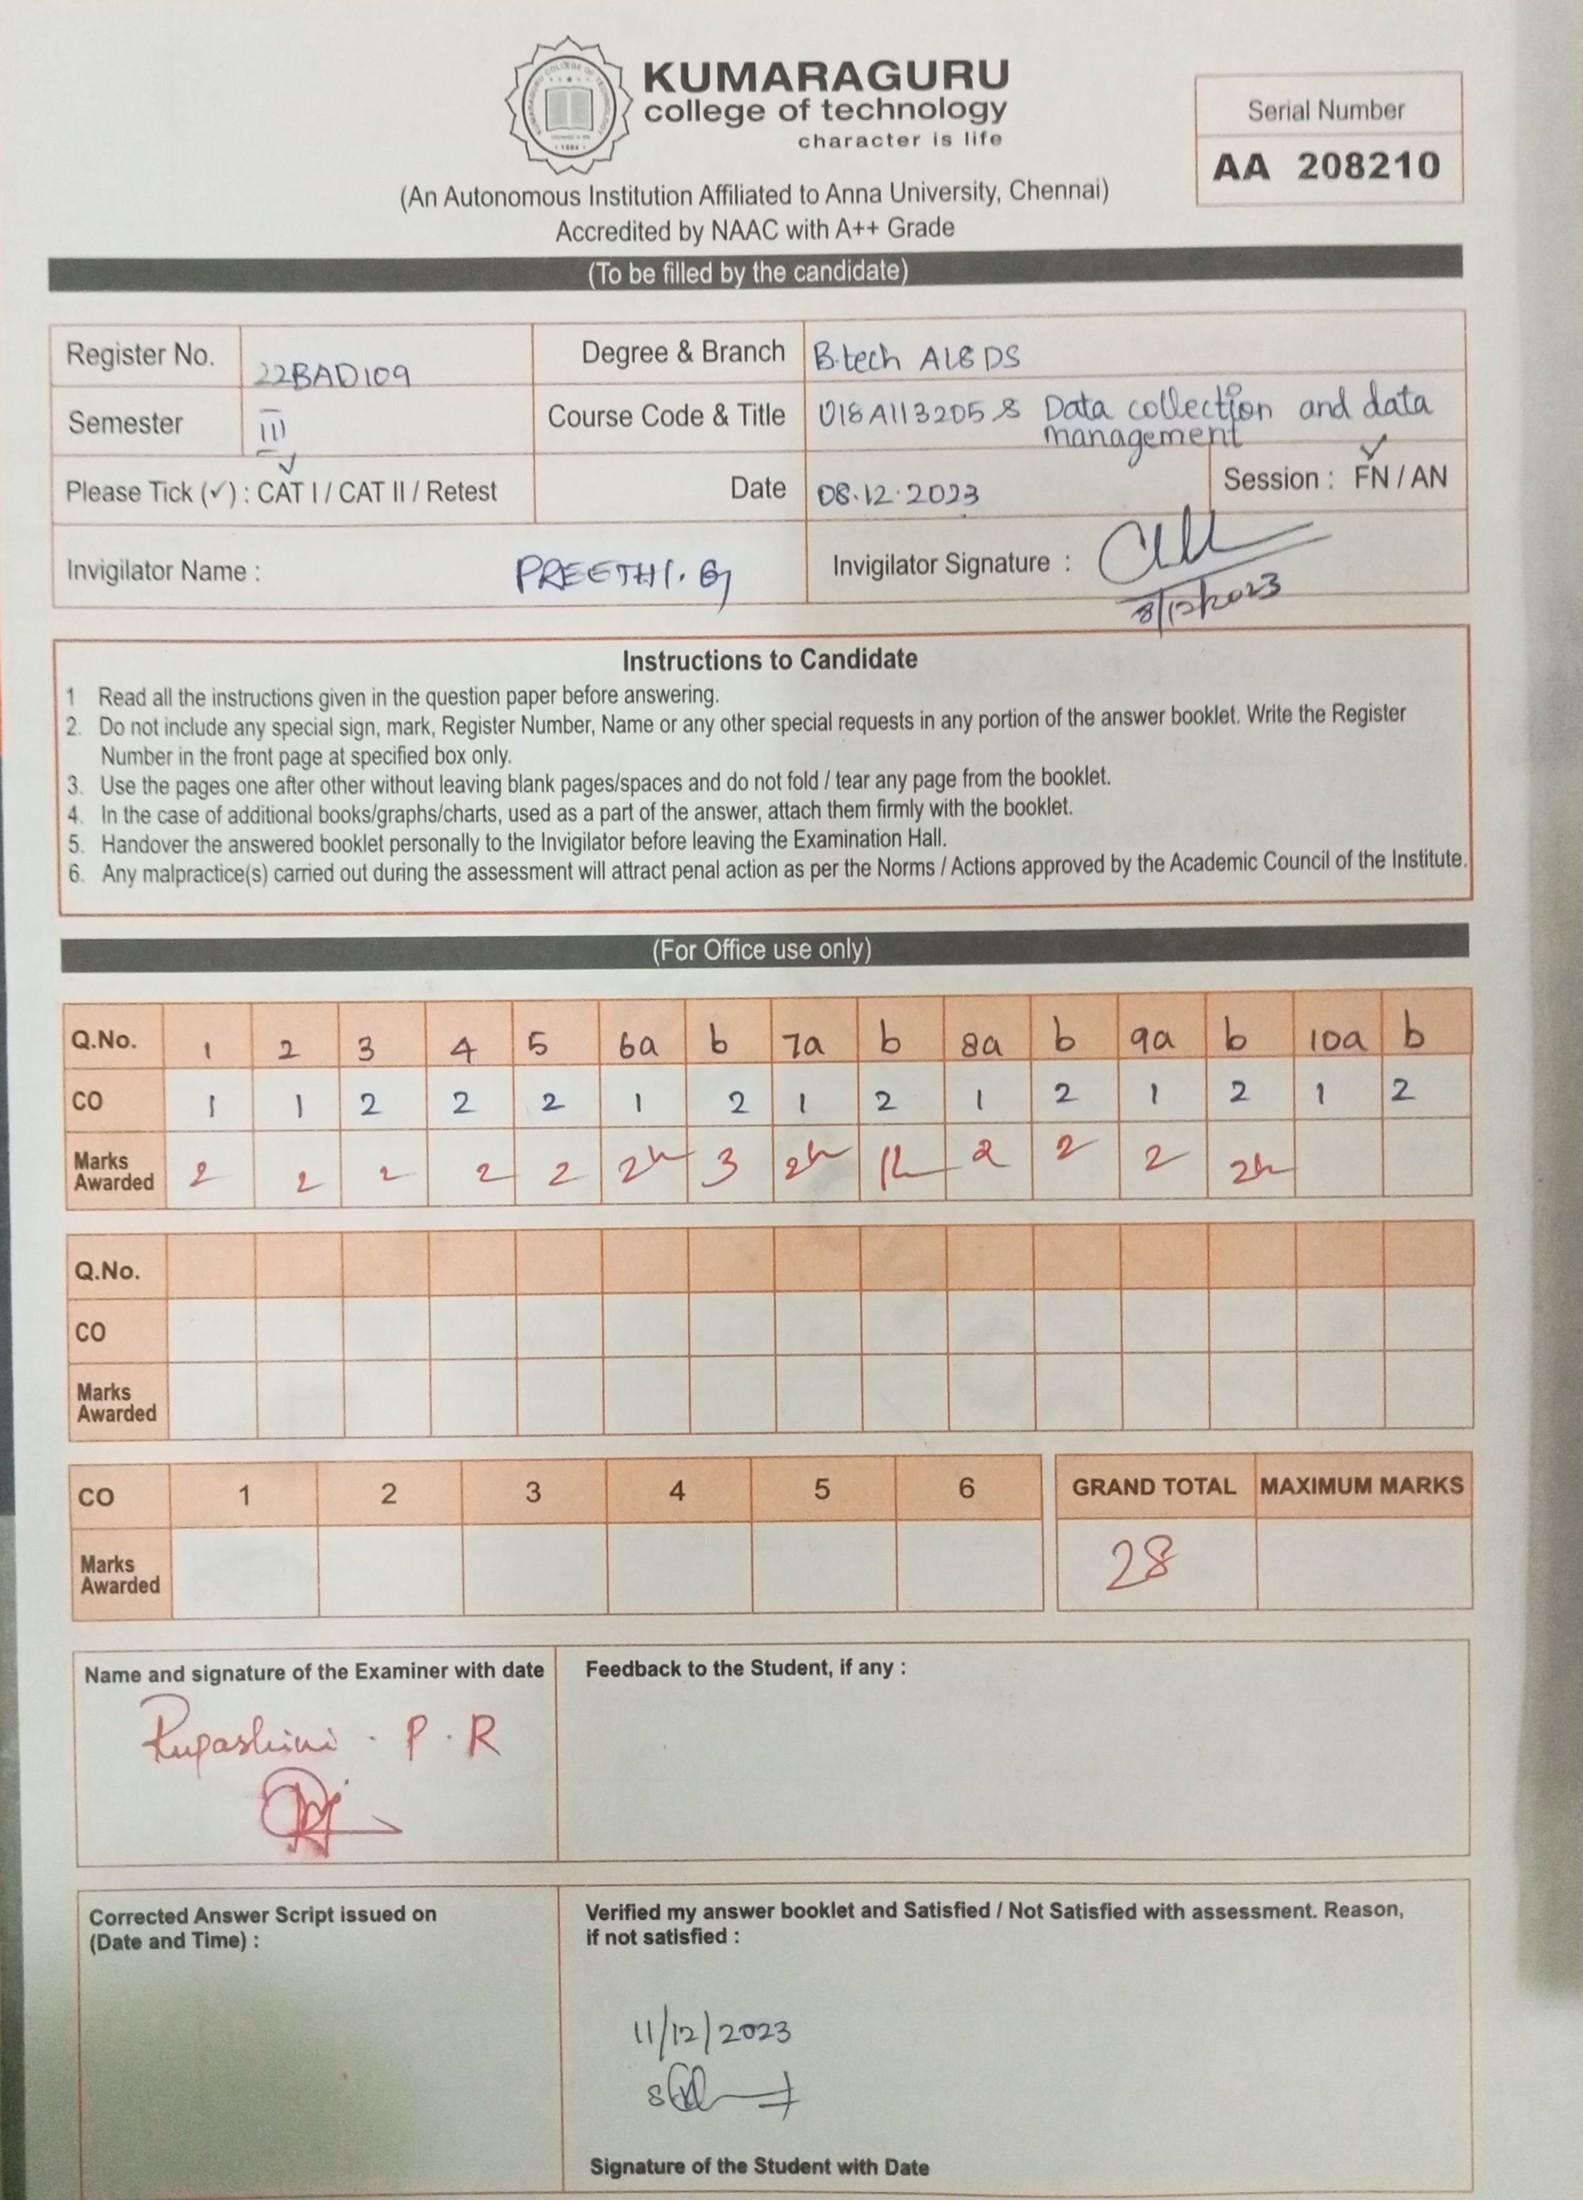 KUMARAGURU
college of technology
character is life
Serial Number
AA 208210
(An Autonomous Institution Affiliated to Anna University, Chennai)
Accredited by NAAC with A++ Grade
(To be filled by the candidate)
Register No. 22BAD109 Degree & Branch B.tech AI&DS
Semester III Course Code & Title U18AII3205 & Data collection and data
management
Please Tick (✓) : CAT I / CAT II / Retest Date 08.12.2023 Session : FN / AN
Invigilator Name : PREETHI. G Invigilator Signature :
8/12/2023
Instructions to Candidate
1 Read all the instructions given in the question paper before answering.
2. Do not include any special sign, mark, Register Number, Name or any other special requests in any portion of the answer booklet. Write the Register
Number in the front page at specified box only.
3. Use the pages one after other without leaving blank pages/spaces and do not fold / tear any page from the booklet.
4. In the case of additional books/graphs/charts, used as a part of the answer, attach them firmly with the booklet.
5. Handover the answered booklet personally to the Invigilator before leaving the Examination Hall.
6. Any malpractice(s) carried out during the assessment will attract penal action as per the Norms / Actions approved by the Academic Council of the Institute.
(For Office use only)
Q.No. 1 2 3 4 5 6a b 7a b 8a b 9a b 10a b
CO 1 1 2 2 2 1 2 1 2 1 2 1 2 1 2
Marks
Awarded 2 2 2 2 2 2½ 3 2½ 1½ 2 2 2 2½
Q.No.
CO
Marks
Awarded
CO 1 2 3 4 5 6 GRAND TOTAL MAXIMUM MARKS
Marks
Awarded 28
Name and signature of the Examiner with date Feedback to the Student, if any :
Rupashini . P . R
Corrected Answer Script issued on
(Date and Time) :
Verified my answer booklet and Satisfied / Not Satisfied with assessment. Reason,
if not satisfied :
11/12/2023
Signature of the Student with Date